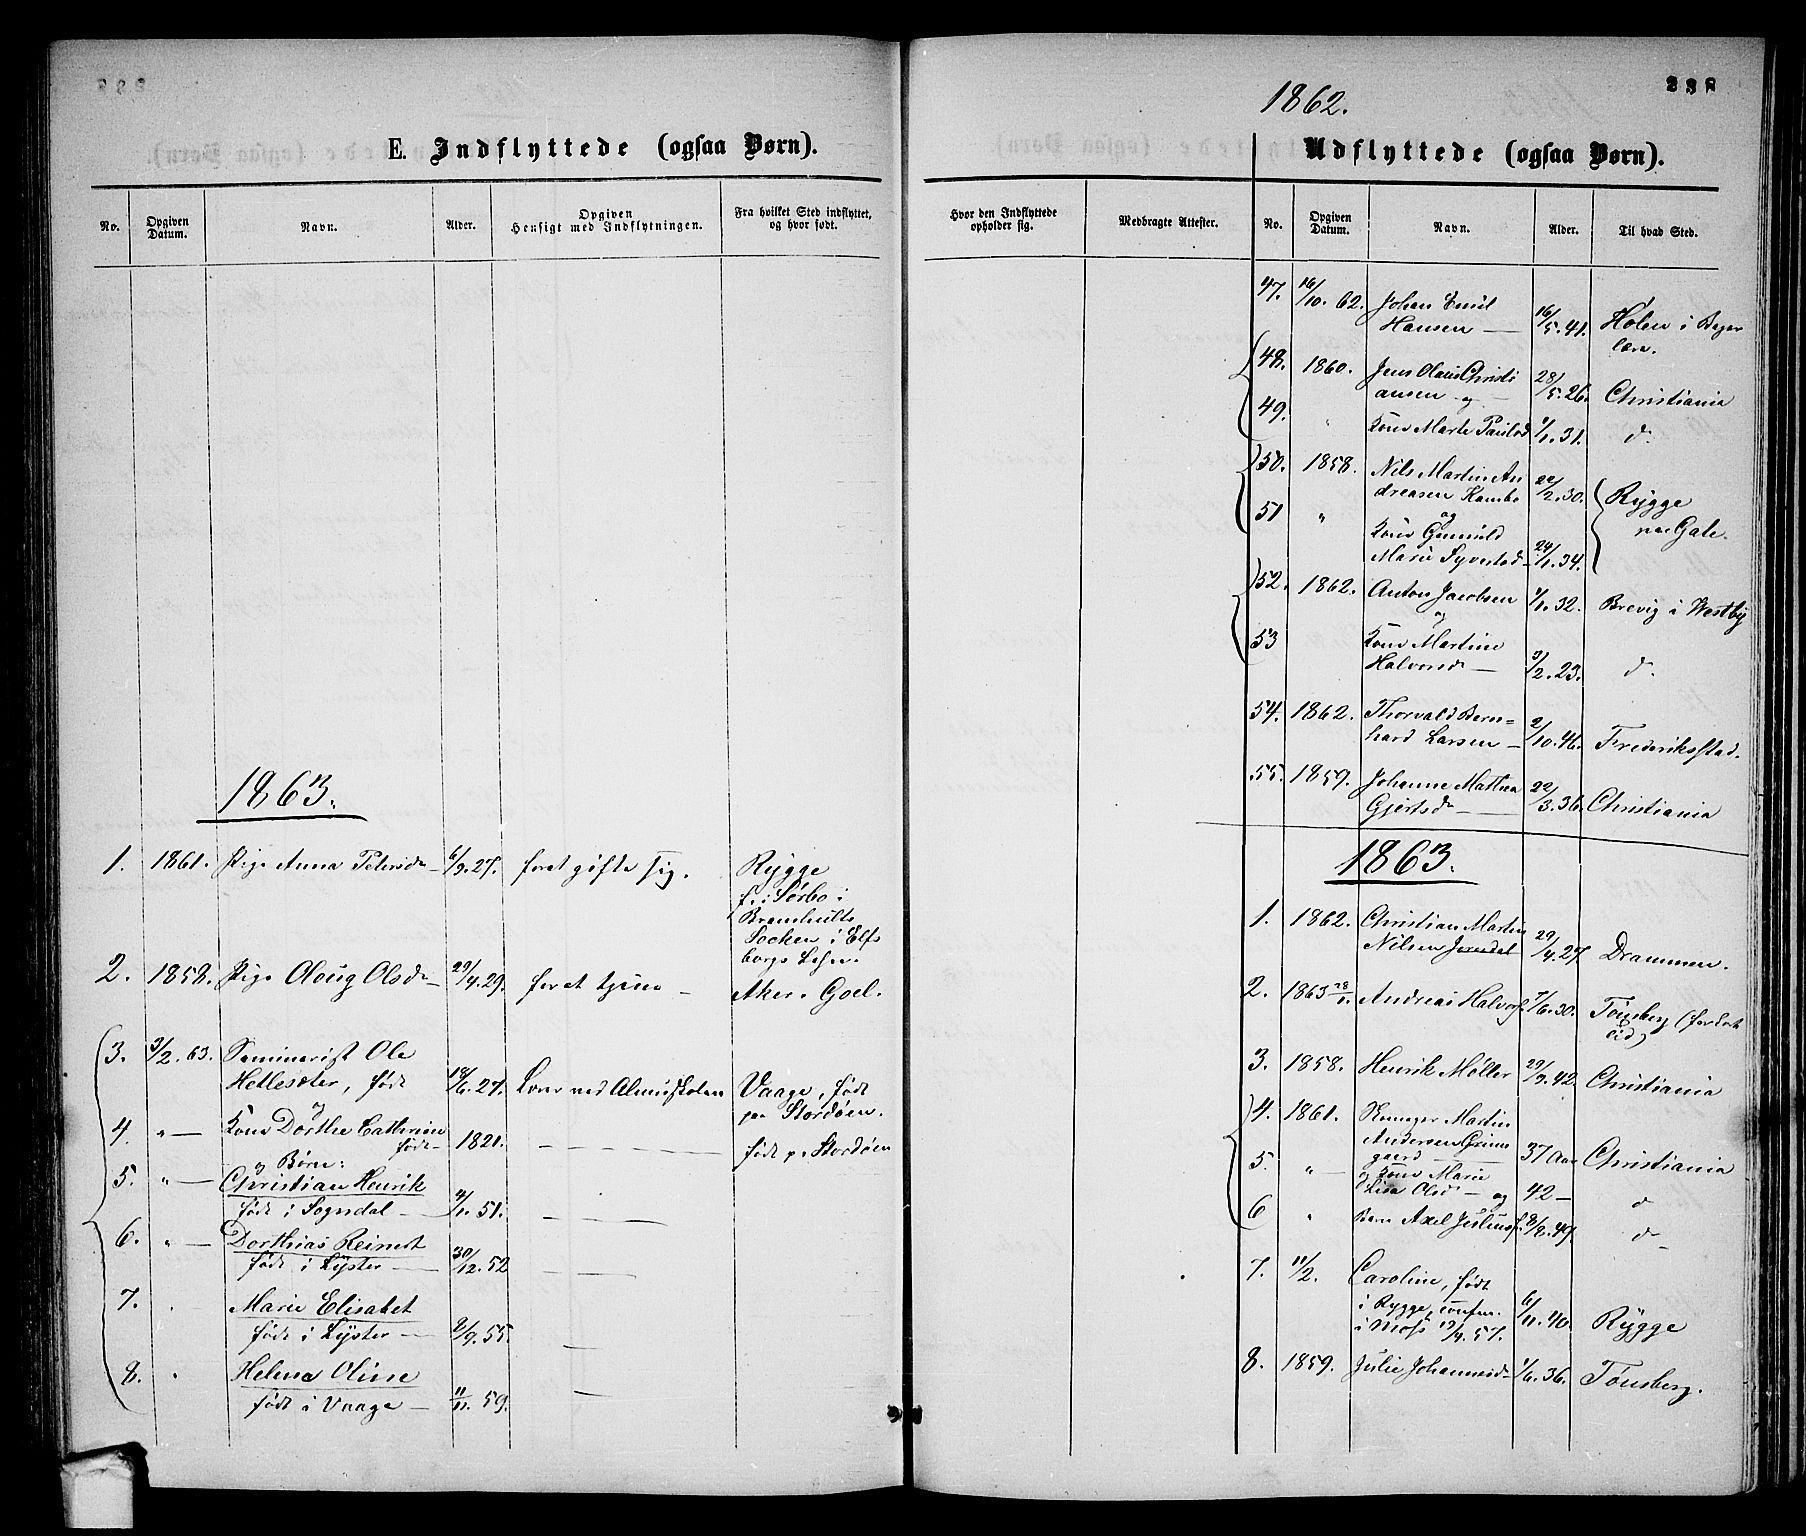 1862.
238
E. Indflyttede (ogsaa Børn).
Udflyttede (ogsaa Børn).
No.
Opgiven Datum.
Navn.
Alder.
Opgiven Hensigt med Indflytningen.
Fra hvilket Sted indflyttet, og hvor født.
Hvor den Indflyttede opholder sig.
Medbragte Attester.
No.
Opgiven Datum.
Navn.
Alder.
Til hvad Sted.
1863.
1. 1861. Pige Anna Petersd 6/9.27. for at gifte sig. Rygge
f. i Sørbo i
Bramhults
Socken i Elfs
borgs Lehn.
2. 1858. Pige Aloug Olsd 29/4.29. for at tjene — Aker. Goel.
3. 3/2.63. Seminarist Ole
Hetlesæter, født 18/6.27. Lærer ved Almueskolen Vaage, født
paa Stordøen.
og
4. " — Kone Dorthe Cathrine
født 1821. — født p. Stordøen
og Børn:
5. " — Christian Henrik
født i Sogndal — 4/1.51.
6. " — Dorthias Reinert
født i Lyster — 30/12.52
7. " Marie Elisabet
født i Lyster — 2/9.55.
8. " Helena Oline
født i Vaage — 11/11.59.
47. 16/10.62. Johan Emil
Hansen — 16/5.41. Holen i Bager
lære.
48. 1860. Jens Olaus Christi
ansen og — 28/5.26. Christiania
49. " Kone Marte Paulsd 1/1.31. d.
50. 1858. Nils Martin An
dreasen Kambo 22/2.30. Rygge
og
paa Gate.
51 " Kone Gunnild
Marie Syverstd 24/1.34.
52. 1862. Anton Jacobsen 1/1.32. Brevig i Westby
og
53 Kone Martine
Halvorsd — 3/2.23. d.
54. 1862. Thorvald Bern=
hard Larsen — 2/10.46. Frederiksstad.
55. 1859. Johanne Mathea
Gjertsd — 22/3.36. Christiania
1863.
1. 1862. Christian Martin
Nilsen Jerndal 29/4.27. Drammen.
2. 1863 28/1. Andreas Halvors. 7/6.30. Tönsberg (for kort
tid)
3. 1858. Henrik Møller 29/9.42. Christiania
4. 1861. Martin
Andersen Grims
gaard — 37 Aar Christiania
5. " — og Kone Marie
Lisa Olsd — og 42 — d
6 " Barn Axel Julius f. 8/8.49. d
7. 11/2. Caroline, født
i Rygge, confir.
i Moss 17/9.57. 6/11.40. Rygge
8. 1859. Julie Johannesd 1/6.36. Tönsberg.